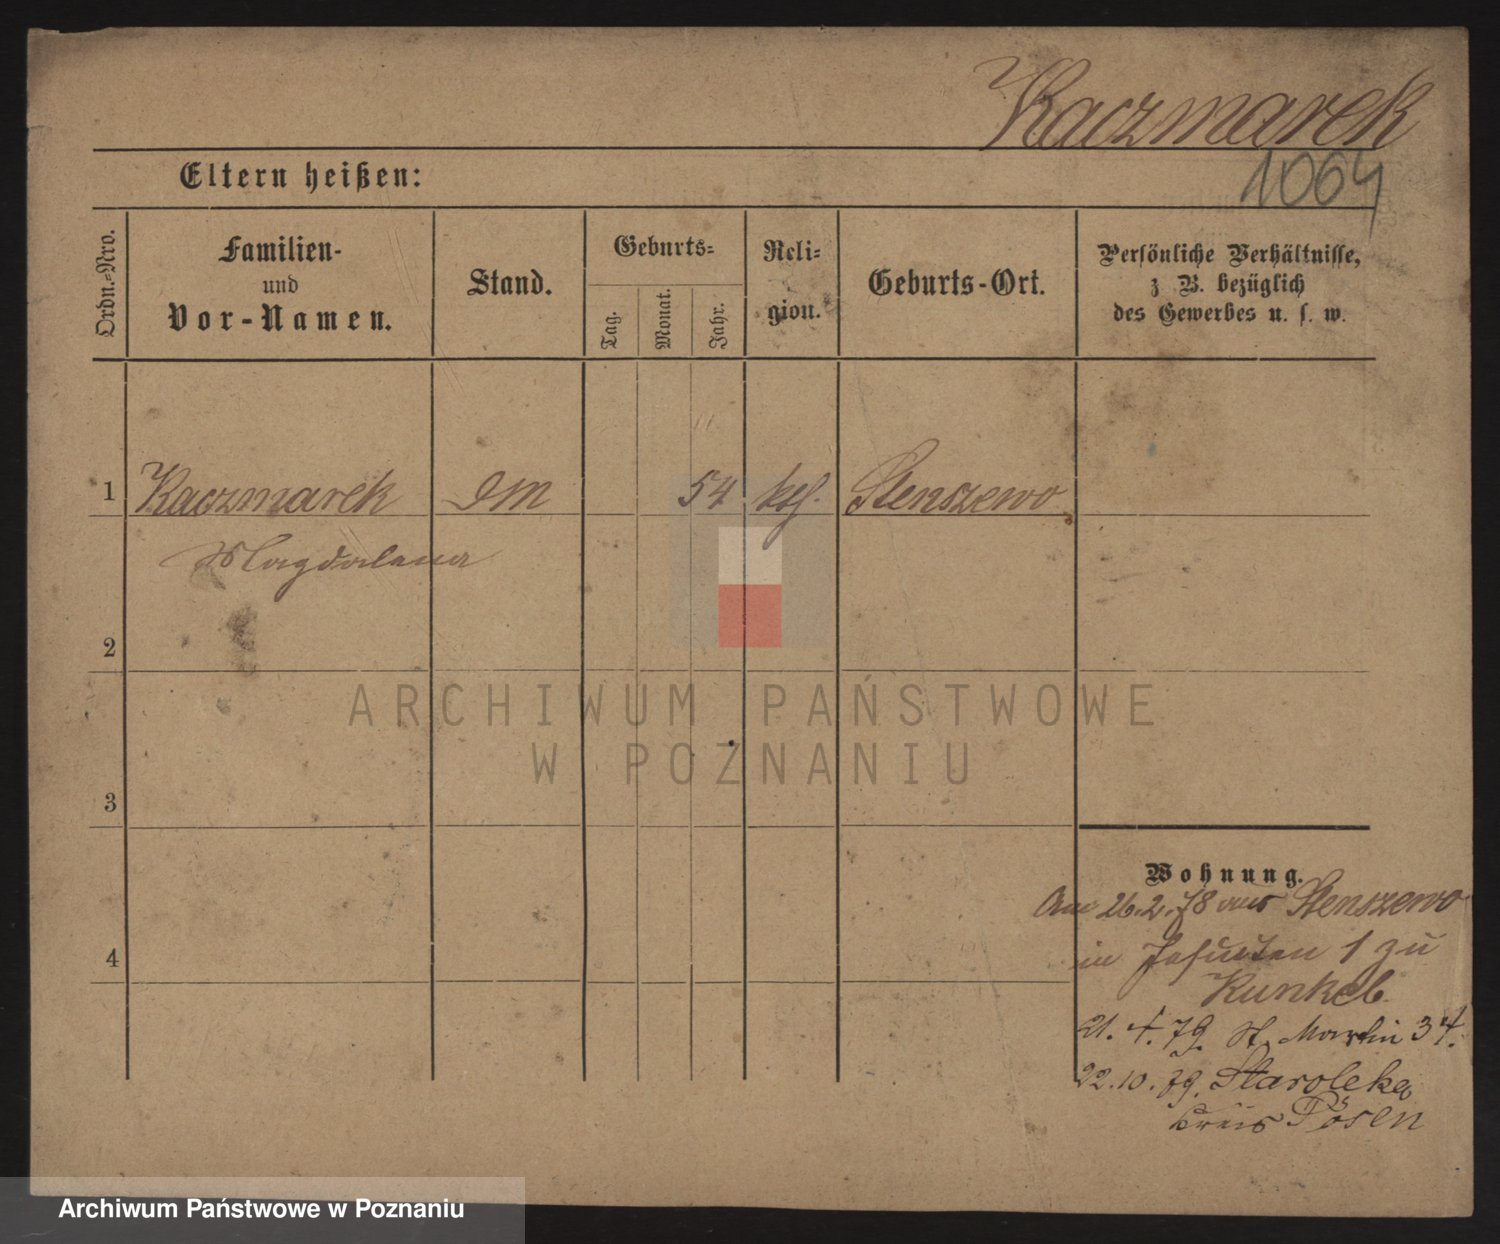 Kaczmarek
1064
Eltern heißen:
Ordn.-Nro.
Familien-
und
Vor-Namen.
Stand.
Geburts-
Tag.
Monat.
Jahr.
Reli-
gion.
Geburts-Ort.
Persönliche Verhältnisse,
z. B. bezüglich
des Gewerbes u. s. w.
1 Kaczmarek DM 54 kth. Stenszewo
Magdalena
2
3
4
Wohnung.
Am 26.2.78 aus Stenszewo
in Jesuiten 1 zu
Kunkel
21. 4. 79. St. Martin 34.
22.10.79. Staroleka
Kreis Posen
ARCHIWUM PAŃSTWOWE
W POZNANIU
Archiwum Państwowe w Poznaniu